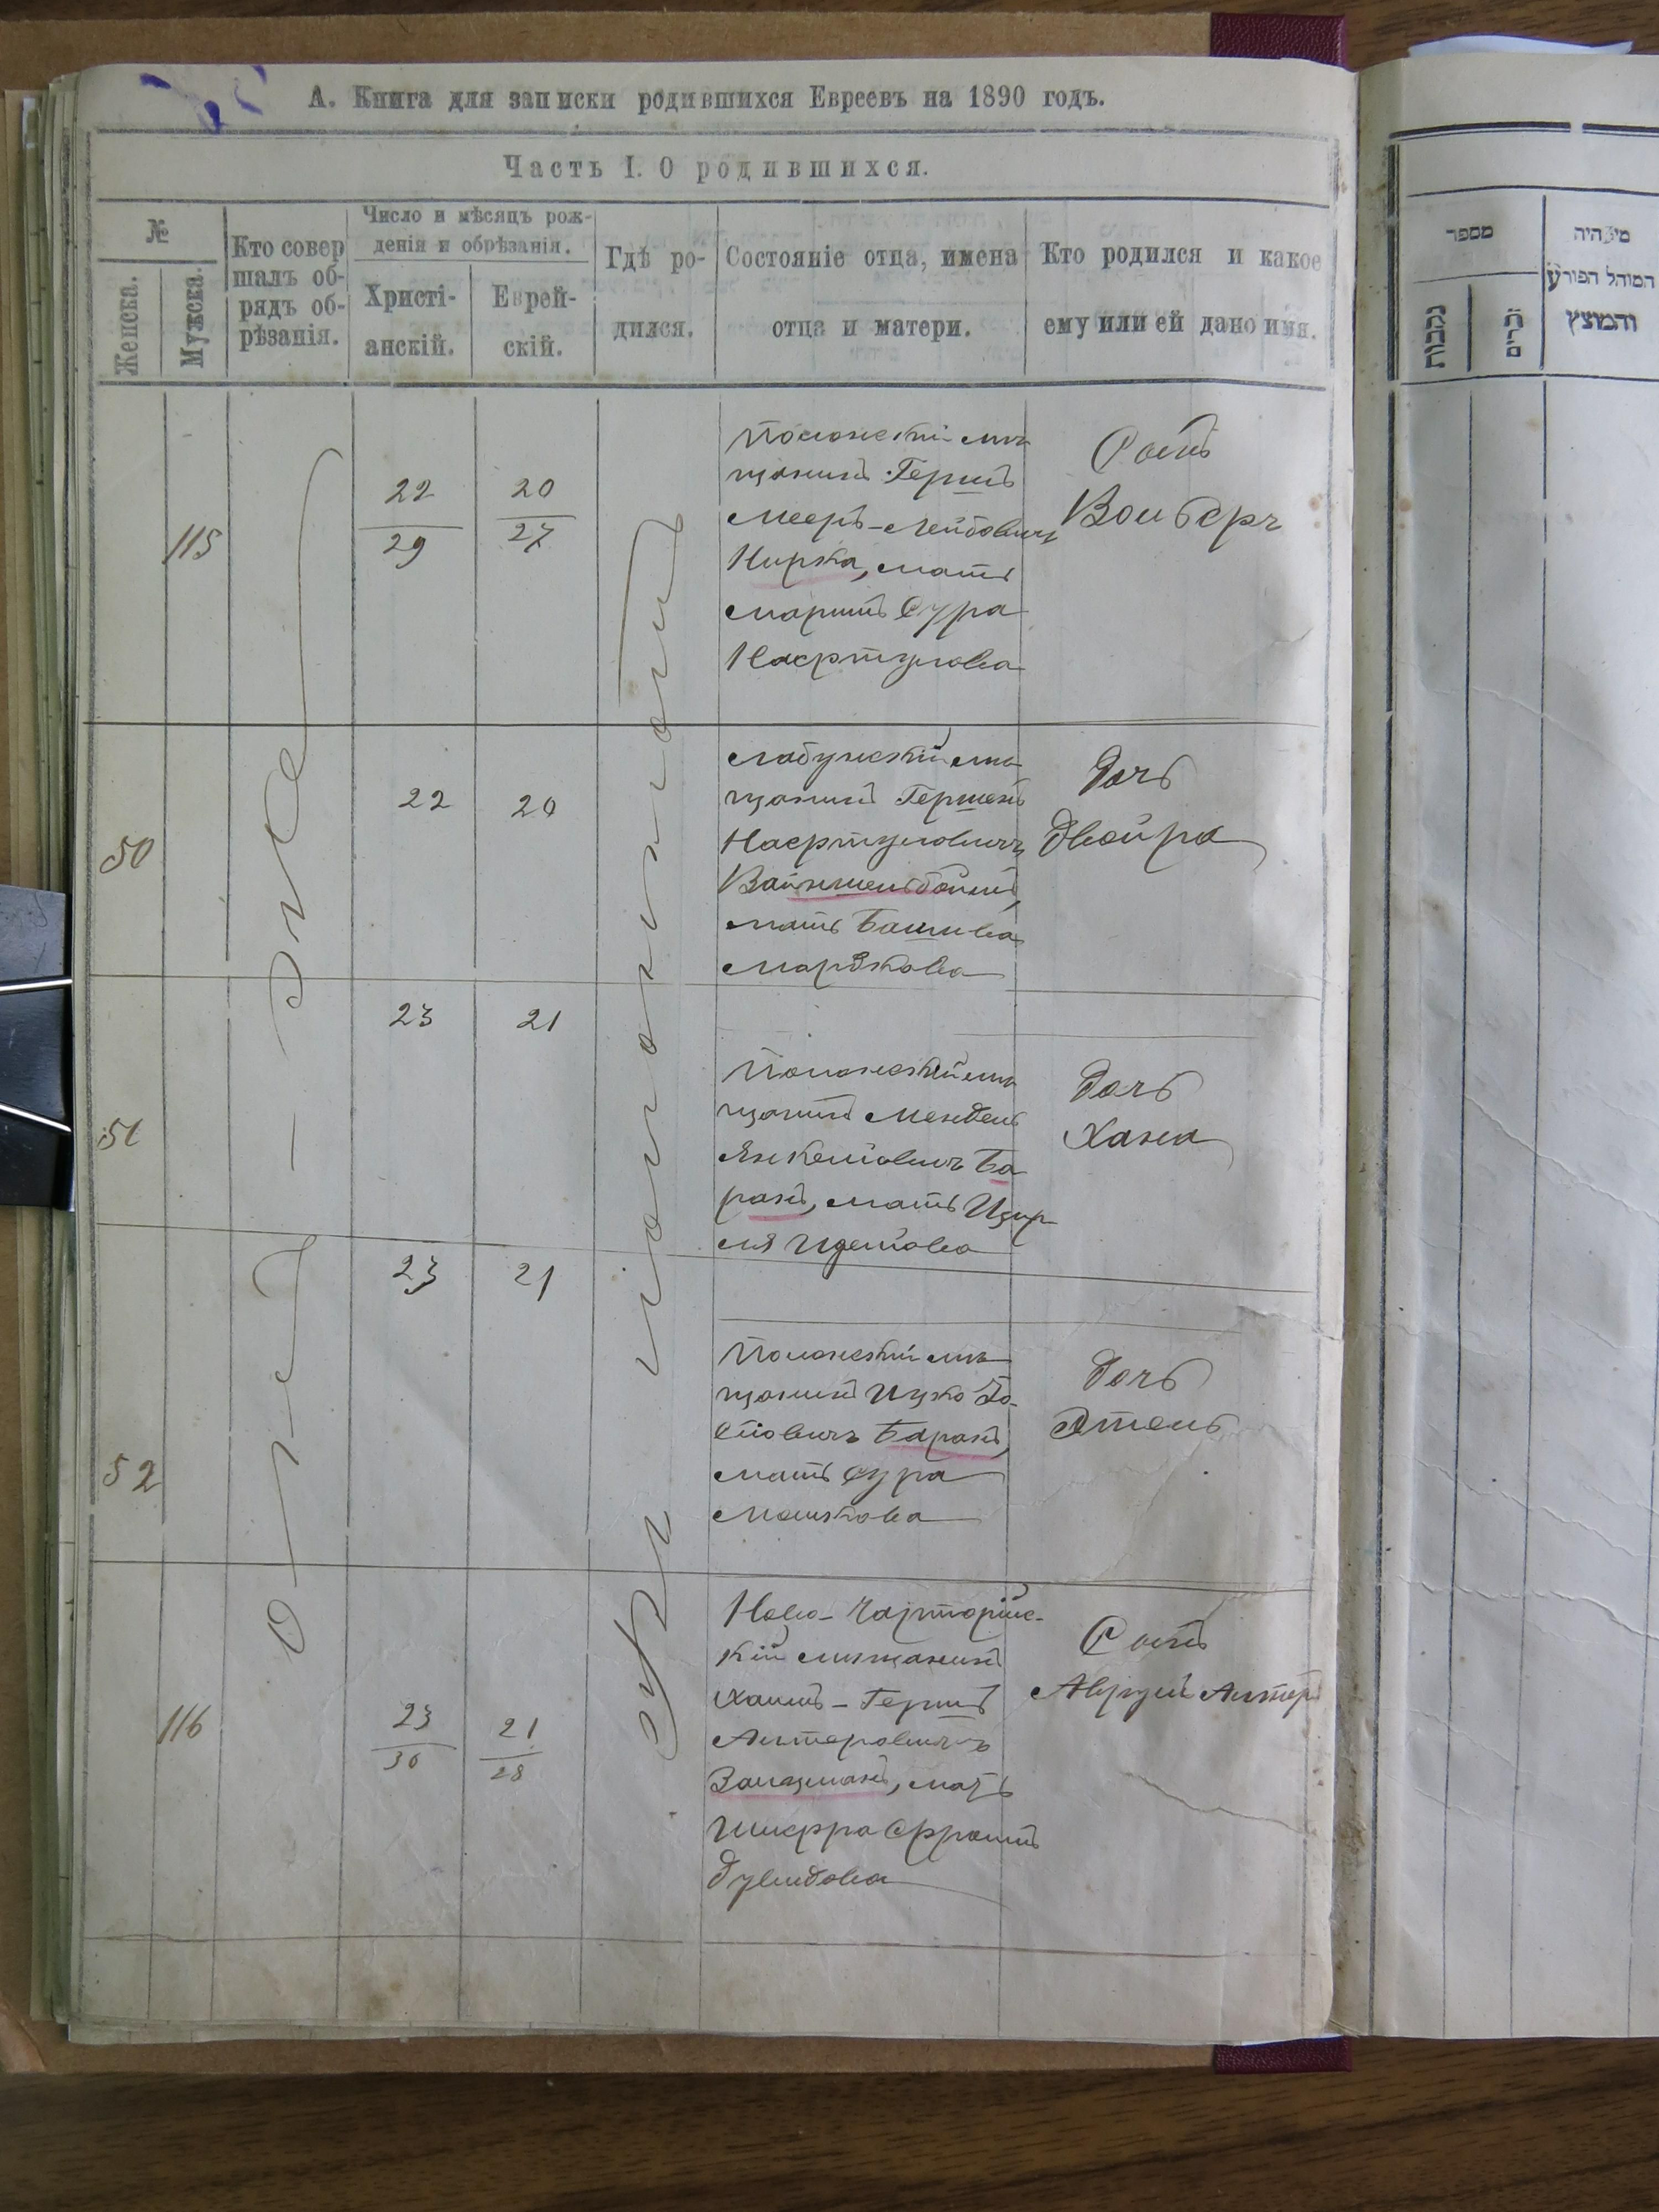 А. Книга для записки родившихся Евреевъ на 1890 годъ.
Часть I. О родившихся.
№
Женска.
Мужска.
Кто совер
шалъ об-
рядъ об-
рѣзанія.
Число и мѣсяцъ рож-
денія и обрѣзанія.
Христі-
анскій.
Еврей-
скій.
Гдѣ ро-
дился.
Состояніе отца, имена
отца и матери.
Кто родился и какое
ему или ей дано имя.
115
22
29
20
27
Полонскій мѣ
щанинъ Гершъ
Мееръ-Лейбовичъ
Кирка, мать
Маріимъ Сура
Нафтулова
Сынъ
Вольфъ
50
22
20
Лабунскій мѣ
щанинъ Гершенъ
Нафтуловичъ
мать Башива
Мардкова
Дочь
Двойра
51
23
21
Полонскій мѣ
щанинъ Мендель
Янкелiовичъ Ба
ранъ, мать
Дочь
Хана
52
23
21
Полонскій мѣ
щанинъ Ицко Іо
сіовичъ Баранъ,
мать Сура
Мошкова
Дочь
Этель
116
23
30
21
28
Ново-Чарторійс-
кій мѣщанинъ
Хаимъ-Гершъ
Алтеровичъ
Зальцманъ, мать
Шифра Фрѣимъ
Дувидова
Сынъ
Аврумъ Алтеръ
מספר
נקבות
זכרים
מי היה
המוהל הפורע
והמוצץ